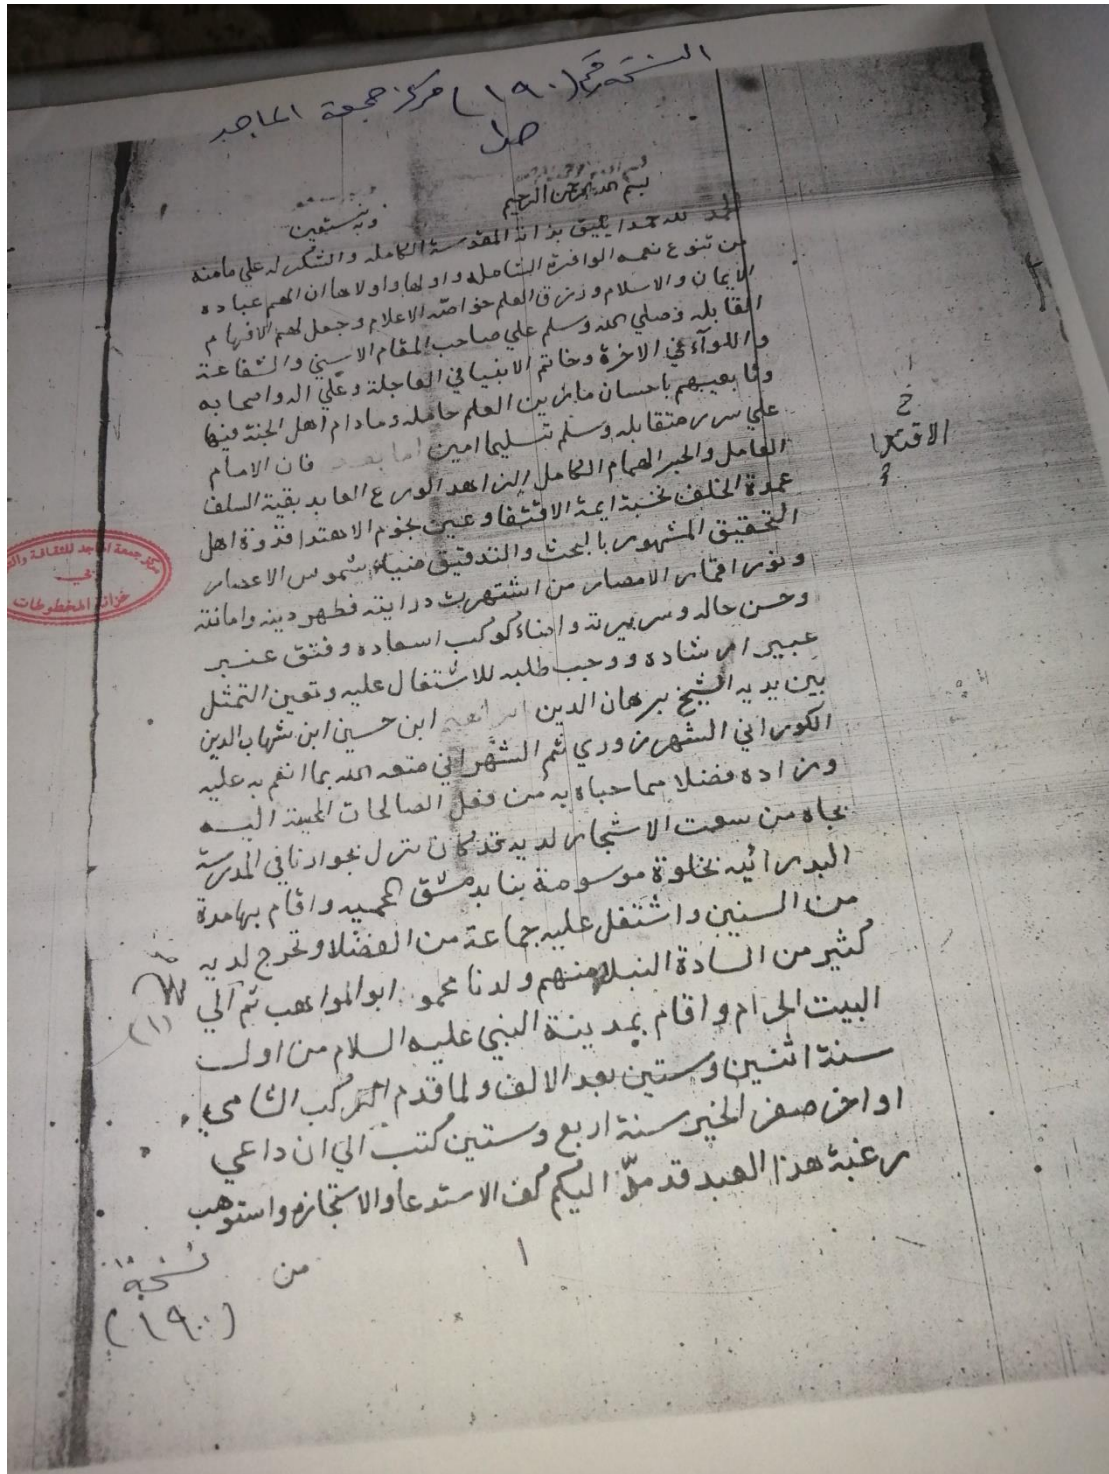 النسخة رقم (١٩٠) مركز جمعة الماجد
بسم الله الرحمن الرحيم
وبه نستعين
الحمد لله حمدا يليق بذاته المقدسة الكامله والشكر له علي ما منه
من تنوع نعمه الوافرة الشامله واولها واولاها ان الهم عباده
الايمان والاسلام ورزق العلم خواصه الاعلام وجعل لهم الافهام
القابله وصلي الله وسلم علي صاحب المقام الاسني والشفاعة
واللوآء في الاخرة وخاتم الانبيا في العاجلة وعلي اله واصحابه
وتابعيهم باحسان ما تزين العلم حامله وما دام اهل الجنة فيها
علي سرر متقابله وسلم تسليما امين اما بعد فان الامام
العامل والحبر الهمام الكامل الزاهد الورع العابد بقية السلف
عمدة الخلف نخبة ايمة الاقتفا وعين نجوم الاهتدا قدوة اهل
التحقيق المشهور بالبحث والتدقيق ضياء شموس الاعصار
ونور اقمار الامصار من اشتهرت درايته فظهر دينه وامانته
وحسن حاله وسريرته واضاء كوكب اسعاده وفتق عنبر
عبير ارشاده ووجب طلبه للاشتغال عليه وتعين التمثل
بين يديه الشيخ برهان الدين ابراهيم ابن حسين ابن شهاب الدين
الكوراني الشهرزوري ثم الشهراني متعه الله بما انعم به عليه
وزاده فضلا مما حباه به من فعل الصالحات المحببة اليه
بجاه من سعت الاشجار لديه قد كان نزل بجوارنا في المدرسة
البدرائيه بخلوة موسومة بنا بدمشق المحميه واقام بها مدة
من السنين واشتغل عليه جماعة من الفضلا وتخرج لديه
كثير من السادة النبلا منهم ولدنا محمد ابو المواهب ثم الي
البيت الحرام واقام بمدينة النبي عليه السلام من اول
سنة اثنين وستين بعد الالف ولما قدم الركب الشامي
اواخر صفر الخير سنة اربع وستين كتب الي ان داعي
رغبة هذا العبد قد ملّ اليكم كف الاستدعا والاستجازه واستوهب
خ
الاقتدا
(١)
مركز جمعة الماجد للثقافة
دبي
خزانة المخطوطات
١
من
نسخة
(١٩٠)